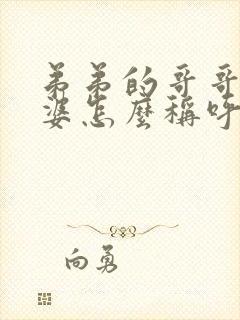 弟弟的哥哥
婆怎麼稱呼
向勇